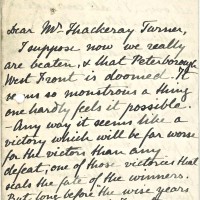 Dear Mr Thackeray Turner,
I suppose now we really
are beaten, & that Peterborough
West Front is doomed. It
seems so monstrous a thing
one hardly feels it possible.
— Any way it seems like a
victory which will be far worse
for the victors than any
defeat; one of those victories that
seals the fate of the winners.
But long before the wise years